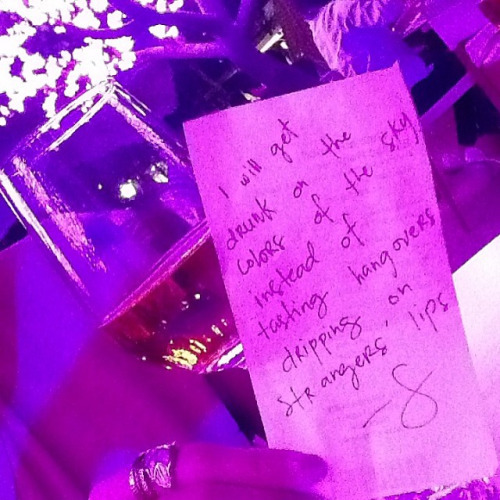 I will get
drunk on the
colors of the sky
instead of
tasting hangovers
dripping on
strangers, lips
-S